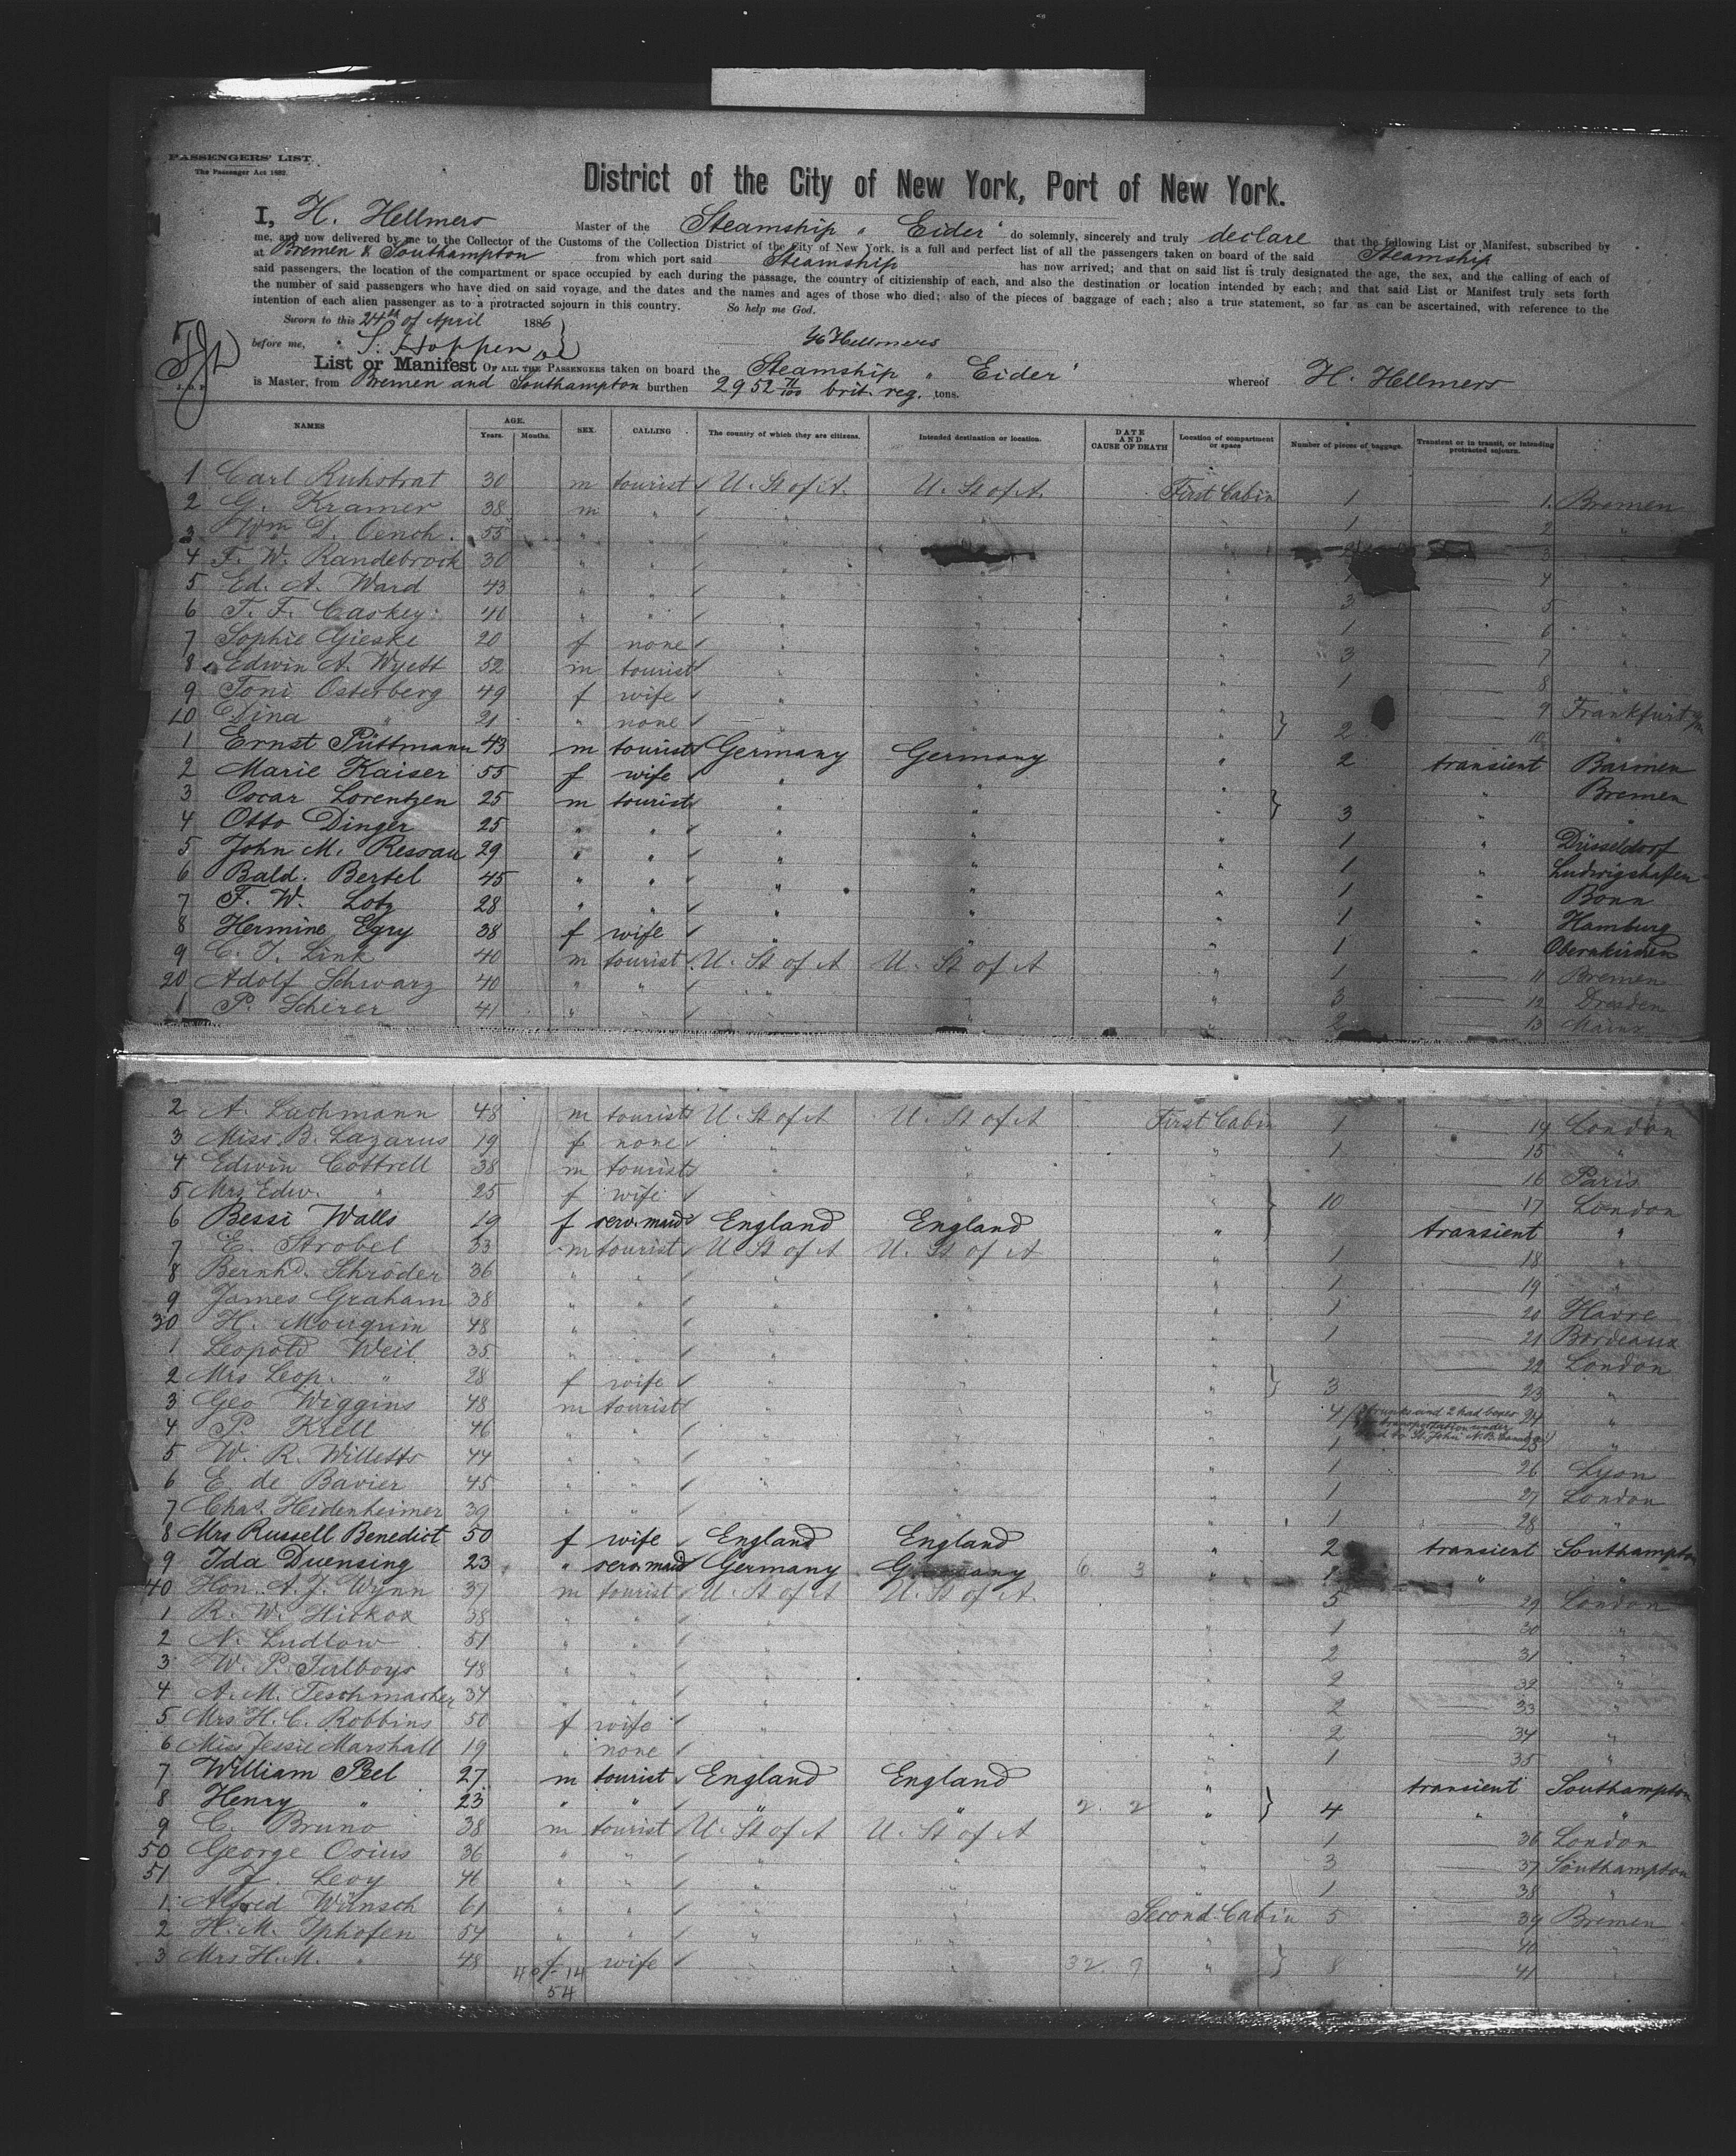 PASSENGERS' LIST.
The Passenger Act 1882.
District of the City of New York, Port of New York.
I, H. Hellmers Master of the Steamship "Eider" do solemnly, sincerely and truly declare that the following List or Manifest, subscribed by
me, and now delivered by me to the Collector of the Customs of the Collection District of the City of New York, is a full and perfect list of all the passengers taken on board of the said Steamship
at Bremen & Southampton from which port said Steamship has now arrived; and that on said list is truly designated the age, the sex, and the calling of each of
said passengers, the location of the compartment or space occupied by each during the passage, the country of citizienship of each, and also the destination or location intended by each; and that said List or Manifest truly sets forth
the number of said passengers who have died on said voyage, and the dates and the names and ages of those who died; also of the pieces of baggage of each; also a true statement, so far as can be ascertained, with reference to the
intention of each alien passenger as to a protracted sojourn in this country. So help me God.
Sworn to this 24th of April 1886
before me, H Hellmers
List or Manifest OF ALL THE PASSENGERS taken on board the Steamship "Eider" whereof H. Hellmers
is Master, from Bremen and Southampton burthen 2952 71/100 brit. reg. tons.
NAMES AGE. Years. Months. SEX. CALLING The country of which they are citizens. Intended destination or location. DATE AND CAUSE OF DEATH Location of compartment or space Number of pieces of baggage. Transient or in transit, or intending protracted sojourn.
1 Carl Ruhstrat 30 m tourist U. St of A. U. St of A. First Cabin 1 1. Bremen
2 G. Kramer 38 m " " " " 1 2 "
3 Wm D. Oench 55 " " " " " 3 "
4 F. W. Randebrock 30 " " " " " 4 "
5 Ed. A. Ward 43 " " " " " 3 5 "
6 T. F. Caskey 40 " " " " " 1 6 "
7 Sophie Gieske 20 f none " " " 3 7 "
8 Edwin A. Wyett 52 m tourist " " " 1 8 "
9 Toni Osterberg 49 f wife " " " 9 Frankfurt a/m
10 Dina " 21 " none " " " 2 10 "
1 Ernst Püttmann 43 m tourist Germany Germany " 2 transient Barmen
2 Marie Kaiser 55 f wife " " " " Bremen
3 Oscar Lorentzen 25 m tourist " " " 3 " "
4 Otto Dinger 25 " " " " " 1 " Düsseldorf
5 John M. Resoau 29 " " " " " 1 " Ludwigshafen
6 Bald. Bertel 45 " " " " " 1 " Bonn
7 F. W. Lotz 28 " " " " " 1 Hamburg
8 Hermine Egry 38 f wife " " " 1 " Obernkirchen
9 C. T. Link 40 m tourist U. St of A U. St of A " 1 11 Bremen
20 Adolf Schwarz 40 " " " " 3 12 Dresden
1 P. Scherer 41 " " " " 2 13 Mainz
2 A. Luchmann 48 m tourist U. St of A U. St of A First Cabin 1 14 London
3 Miss B. Lazarus 19 f none " " " 1 15 "
4 Edwin Cottrell 38 m tourist " " " 16 Paris
5 Mrs Edw. " 25 f wife " " " 10 17 London
6 Bessi Walls 19 f serv. maid England England " transient "
7 E. Strobel 33 m tourist U. St of A U. St of A 1 18 "
8 Bernhd. Schröder 36 " " " " " 1 19 "
9 James Graham 38 " " " " " 1 20 Havre
30 H. Mouquin 48 " " " " " 1 21 Bordeaux
1 Leopold Weil 35 " " " " " 22 London
2 Mrs Leop. " 28 f wife " " " 3 23 "
3 Geo Wiggins 48 m tourist " " " 4 24 "
trunks and 2 had boxes
transportation under
to St. John N.B.
4 P. Krell 46 " " " " " 1 25 "
5 W. R. Willetts 44 " " " " " 1 26 Lyon
6 E. de Bavier 45 " " " " " 1 27 London
7 Chas. Heidenheimer 39 " " " " " 1 28 "
8 Mrs Russell Benedict 50 f wife England England " 2 transient Southampton
9 Ida Duensing 23 " serv. maid Germany Germany 6 3 " 1 " "
40 Hon. A. J. Wynn 37 m tourist U St of A U. St of A. 5 29 London
1 R. W. Hickox 38 " " " " " 1 30 "
2 N. Ludlow 51 " " " " " 2 31 "
3 W. P. Talboys 48 " " " " " 2 32 "
4 A. M. Teschmacher 34 " " " " " 2 33 "
5 Mrs H. C. Robbins 50 f wife " " " 2 34 "
6 Miss Jessie Marshall 19 " none " " " 1 35 "
7 William Peel 27 m tourist England England " transient Southampton
8 Henry " 23 " " " " 2. 2 " 4 " "
9 C. Bruno 38 m tourist U. St of A U. St of A " 1 36 London
50 George Osius 36 " " " " " 3 37 Southampton
51 Levy " " " " " 1 38 "
1 Alfred Wünsch 61 " " " " Second Cabin 5 39 Bremen
2 H. M. Iphofen 54 " " " " " 40 "
3 Mrs H. M. " 48 f wife " " 32. 9 " 8 41 "
40 14
54